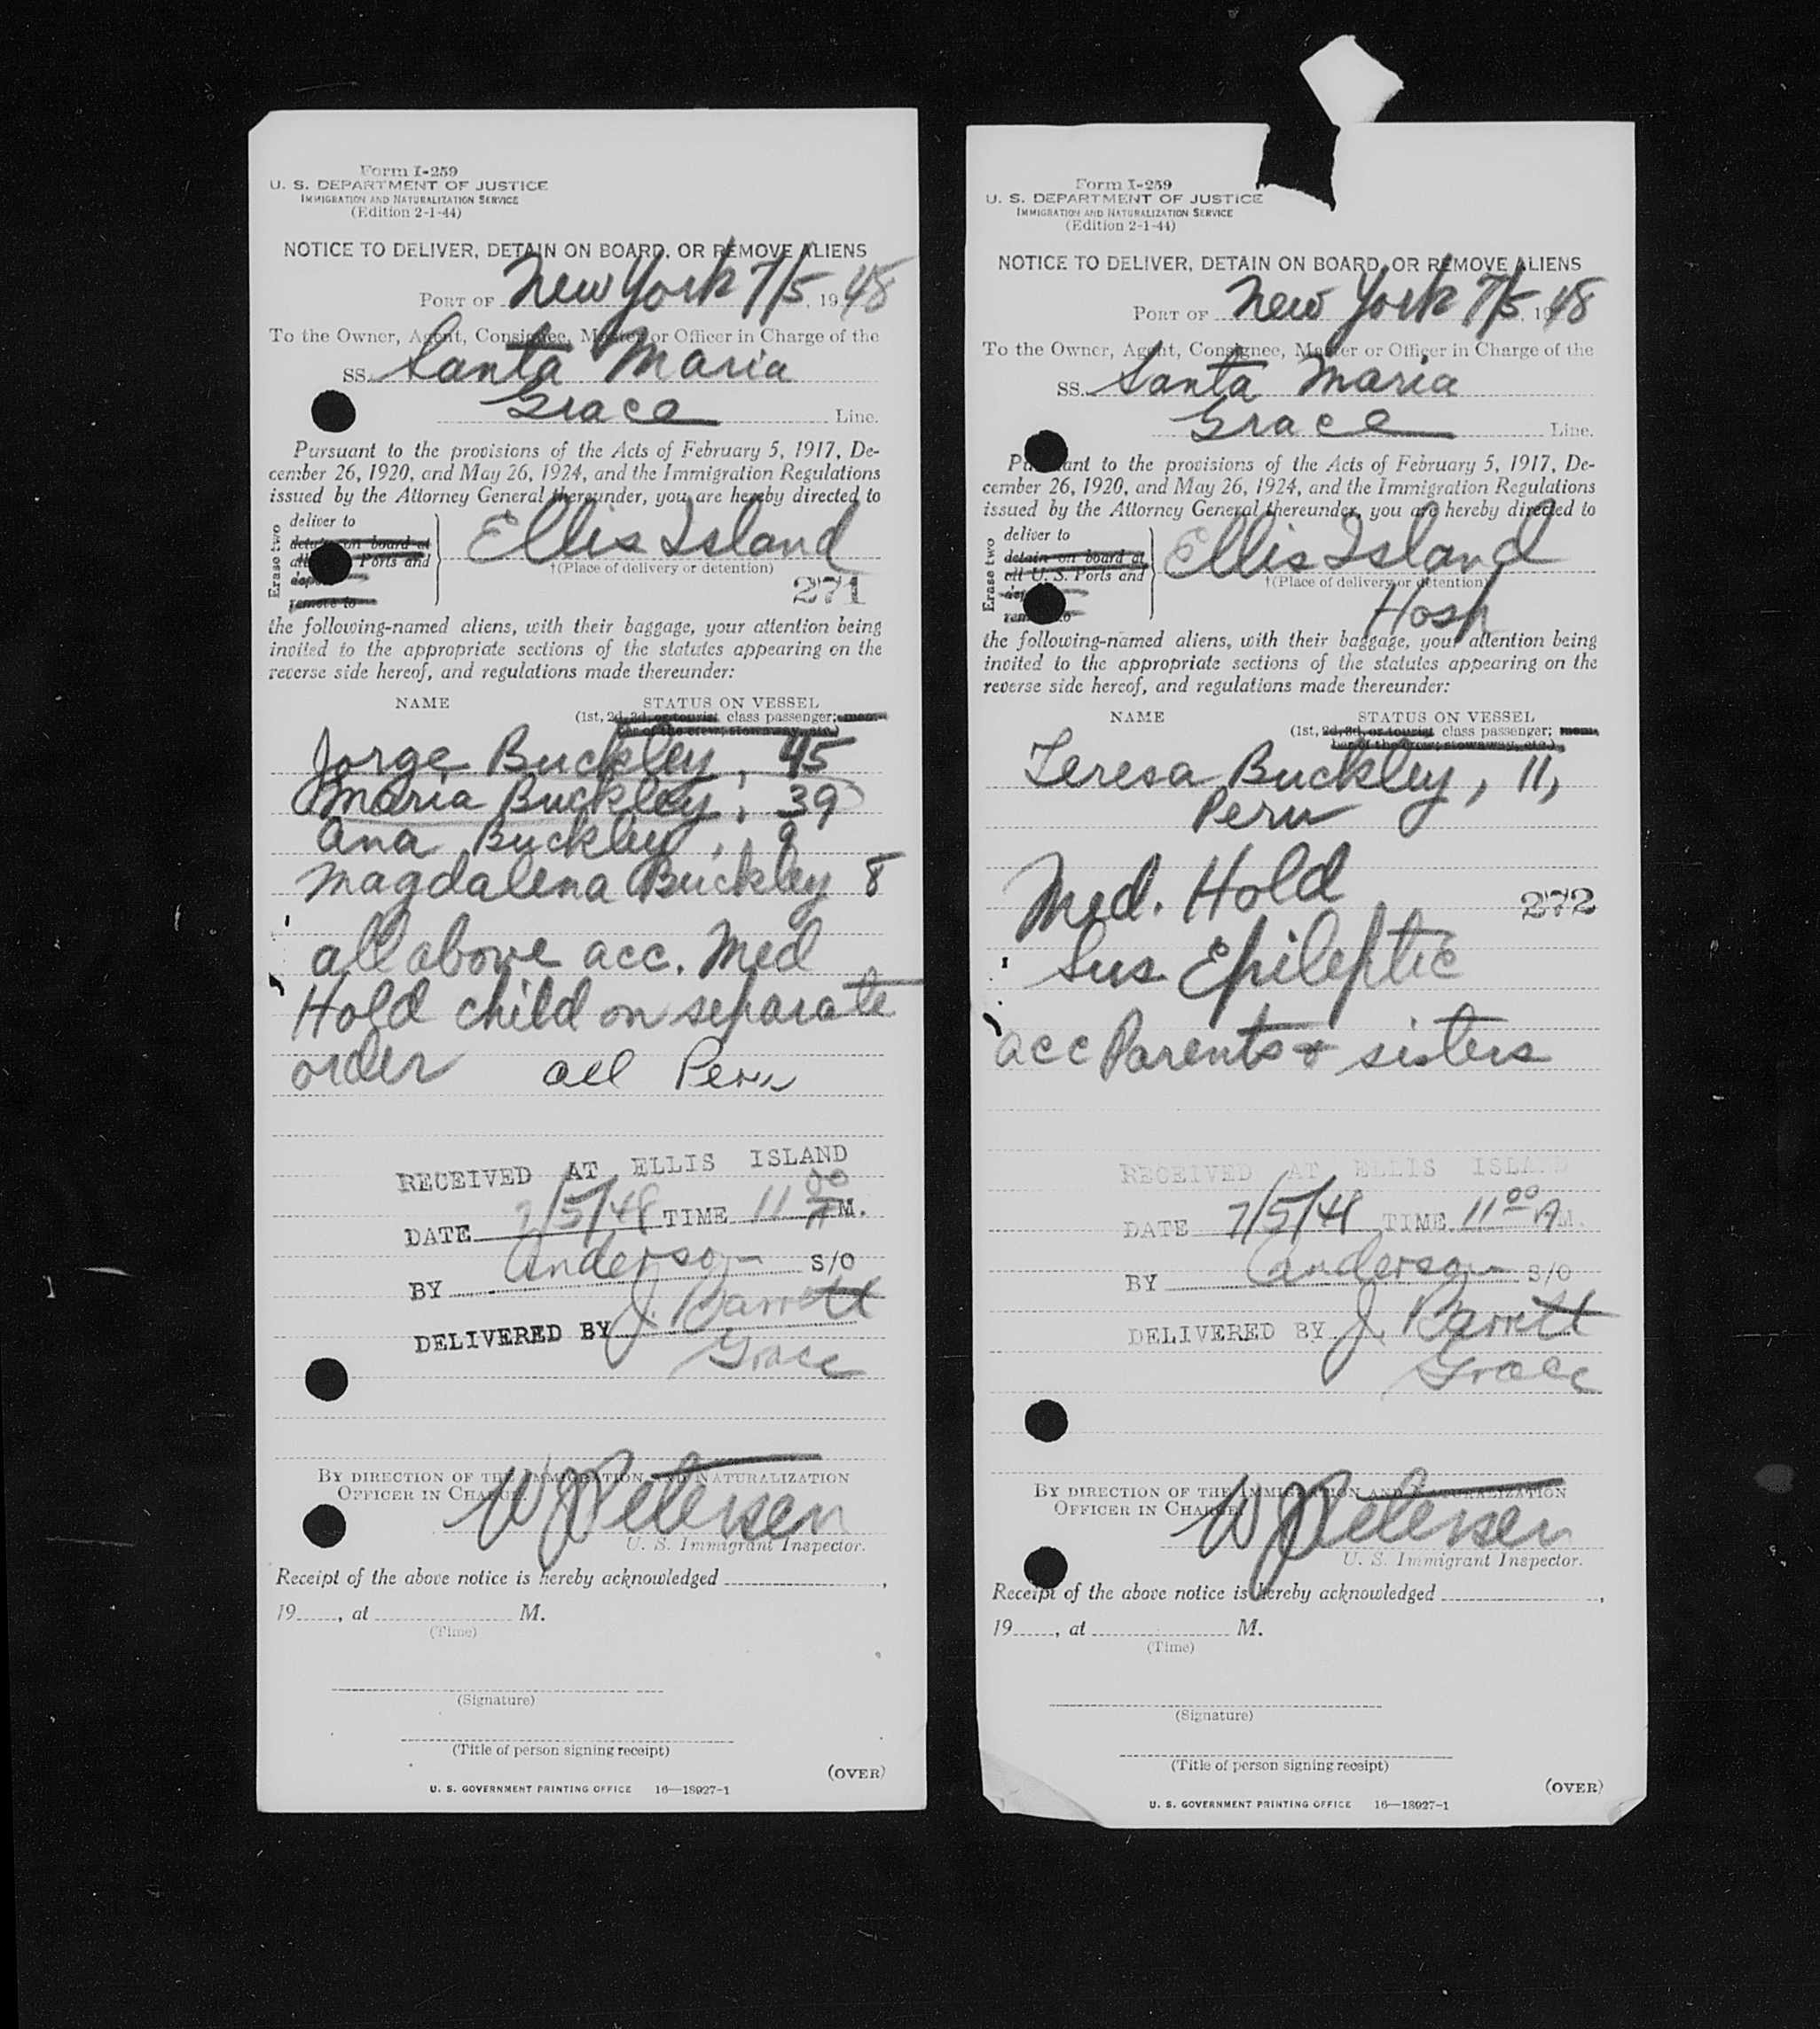 Form I-259
U. S. DEPARTMENT OF JUSTICE
IMMIGRATION AND NATURALIZATION SERVICE
(Edition 2-1-44)
NOTICE TO DELIVER, DETAIN ON BOARD, OR REMOVE ALIENS
PORT OF New York 7/5, 1948
To the Owner, Agent, Consignee, Master or Officer in Charge of the
SS. Santa Maria
Grace Line.
Pursuant to the provisions of the Acts of February 5, 1917, De-
cember 26, 1920, and May 26, 1924, and the Immigration Regulations
issued by the Attorney General thereunder, you are hereby directed to
Erase two
deliver to
detain on board at
Ports and
remove to
Ellis Island
†(Place of delivery or detention)
271
the following-named aliens, with their baggage, your attention being
invited to the appropriate sections of the statutes appearing on the
reverse side hereof, and regulations made thereunder:
NAME STATUS ON VESSEL
(1st, 2d, 3d, or tourist class passenger; mem-
ber of the crew; stowaway, etc.)
Jorge Buckley, 45
Maria Buckley, 39
Ana Buckley, 9
Magdalena Buckley 8
all above acc. Med
Hold child on separate
order all Peru
RECEIVED AT ELLIS ISLAND
DATE 7/5/48 TIME 11 00 A M.
BY Anderson S/O
DELIVERED BY J. Barrett
Grace
BY DIRECTION OF THE IMMIGRATION AND NATURALIZATION
OFFICER IN CHARGE.
W J Petersen
U. S. Immigrant Inspector.
Receipt of the above notice is hereby acknowledged ,
19 , at M.
(Time)
(Signature)
(Title of person signing receipt)
(OVER)
U. S. GOVERNMENT PRINTING OFFICE 16—18927-1
Form I-259
U. S. DEPARTMENT OF JUSTICE
IMMIGRATION AND NATURALIZATION SERVICE
(Edition 2-1-44)
NOTICE TO DELIVER, DETAIN ON BOARD, OR REMOVE ALIENS
PORT OF New York 7/5, 1948
To the Owner, Agent, Consignee, Master or Officer in Charge of the
SS. Santa Maria
Grace Line.
Pursuant to the provisions of the Acts of February 5, 1917, De-
cember 26, 1920, and May 26, 1924, and the Immigration Regulations
issued by the Attorney General thereunder, you are hereby directed to
Erase two
deliver to
detain on board at
all U. S. Ports and
Ellis Island
†(Place of delivery or detention)
Hosp
the following-named aliens, with their baggage, your attention being
invited to the appropriate sections of the statutes appearing on the
reverse side hereof, and regulations made thereunder:
NAME STATUS ON VESSEL
(1st, 2d, 3d, or tourist class passenger; mem-
ber of the crew; stowaway, etc.)
Teresa Buckley, 11,
Peru
Med. Hold
272
Sus Epileptic
acc Parents & sisters
RECEIVED AT ELLIS ISLAND
DATE 7/5/48 TIME 11 00 A M.
BY Anderson S/O
DELIVERED BY J. Barrett
Grace
BY DIRECTION OF THE IMMIGRATION AND NATURALIZATION
OFFICER IN CHARGE.
W J Petersen
U. S. Immigrant Inspector.
Receipt of the above notice is hereby acknowledged ,
19 , at M.
(Time)
(Signature)
(Title of person signing receipt)
(OVER)
U. S. GOVERNMENT PRINTING OFFICE 16—18927-1